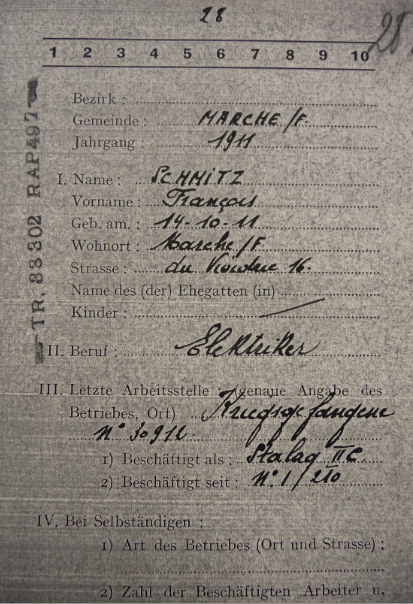 28
28
1 2 3 4 5 6 7 8 9 10
TR. 88302 RAP497
Bezirk :
Gemeinde : MARCHE/F.
Jahrgang : 1911
I. Name : SCHMITZ
Vorname : François
Geb. am. : 14-10-11
Wohnort : Marche/F.
Strasse : du Viaduc 16.
Name des (der) Ehegatten (in)
Kinder :
II. Beruf : Elektriker
III. Letzte Arbeitsstelle : (genaue Angabe des
Betriebes, Ort) Kriegsgefangene
N° 30912.
1) Beschäftigt als : Stalag II C
2) Beschäftigt seit : N° 1/210
IV. Bei Selbständigen :
1) Art des Betriebes (Ort und Strasse) :
2) Zahl der Beschäftigten Arbeiter u.